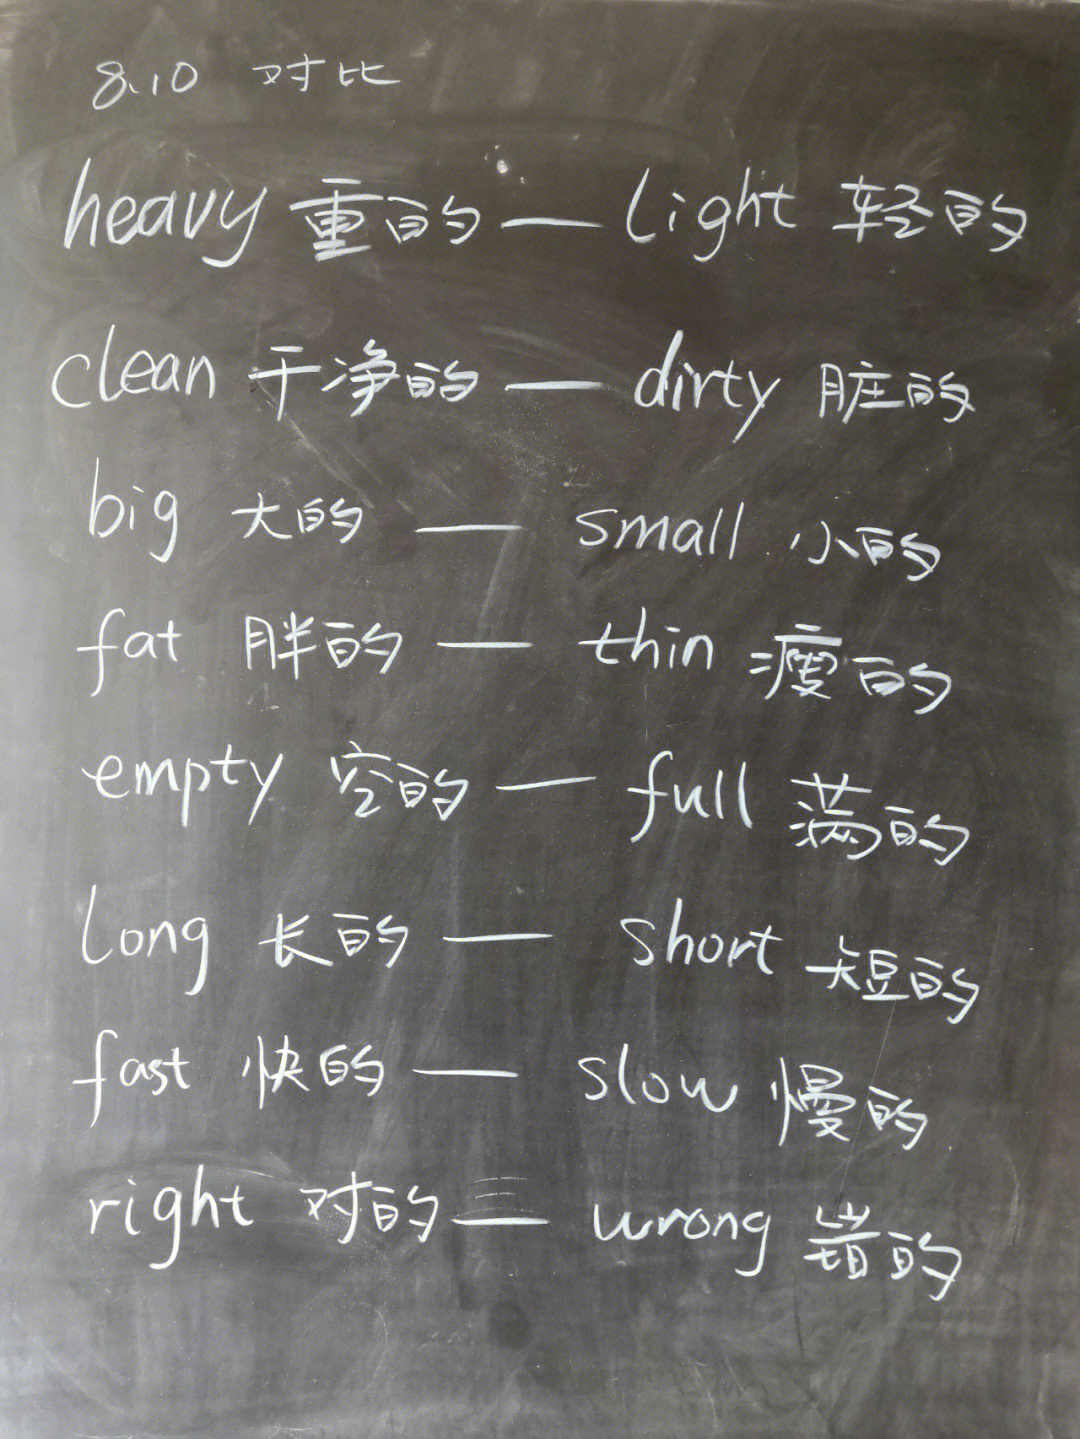 8.10 对比
heavy 重的 — light 轻的
clean 干净的 — dirty 脏的
big 大的 — small 小的
fat 胖的 — thin 瘦的
empty 空的 — full 满的
long 长的 — short 短的
fast 快的 — slow 慢的
right 对的 — wrong 错的